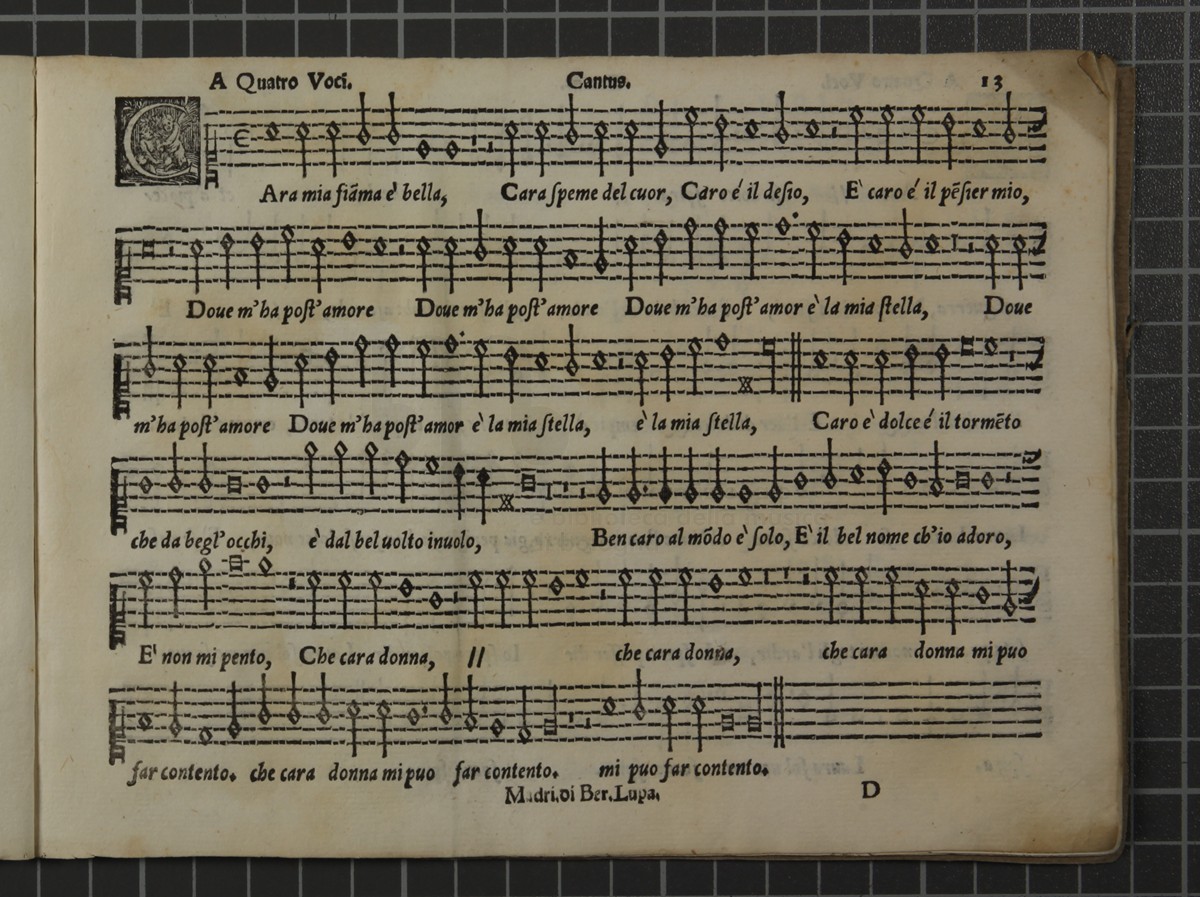 A Quatro Voci. Cantus. 13
CAra mia fiãma e' bella, Cara ſpeme del cuor, Caro é il deſio, E' caro é il pẽſier mio,
Doue m'ha poſt' amore Doue m'ha poſt' amore Doue m'ha poſt' amor è la mia ſtella, Doue
m'ha poſt' amore Doue m'ha poſt' amor è la mia ſtella, è la mia ſtella, Caro e' dolce é il tormẽto
che da begl' occhi, è dal bel uolto inuolo, Ben caro al mõdo è ſolo, E' il bel nome ch'io adoro,
E' non mi pento, Che cara donna, // che cara donna, che cara donna mi puo
far contento. che cara donna mi puo far contento. mi puo far contento.
Madri. di Ber. Lupa. D